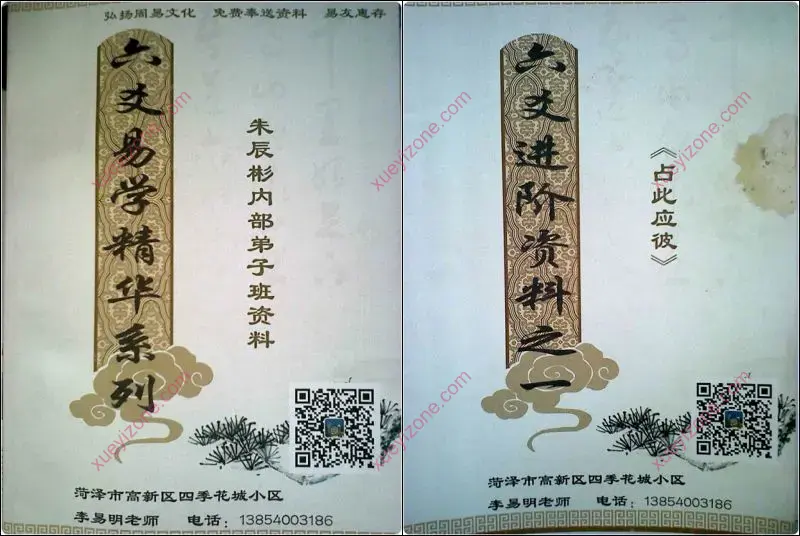 弘扬周易文化 免费奉送资料 易友惠存
六爻易学精华系列
朱辰彬内部弟子班资料
菏泽市高新区四季花城小区
李易明老师 电话：13854003186
六爻进阶资料之一
《占此应彼》
菏泽市高新区四季花城小区
李易明老师 电话：13854003186
xueyizone.com
xueyizone.com
xueyizone.com
xueyizone.com
xueyizone.com
xueyizone.com
xueyizone.com
xueyizone.com